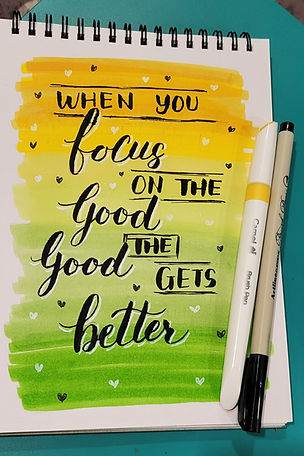 WHEN YOU
focus
ON THE
Good
THE
Good
GETS
better
Camel
Brush Pen